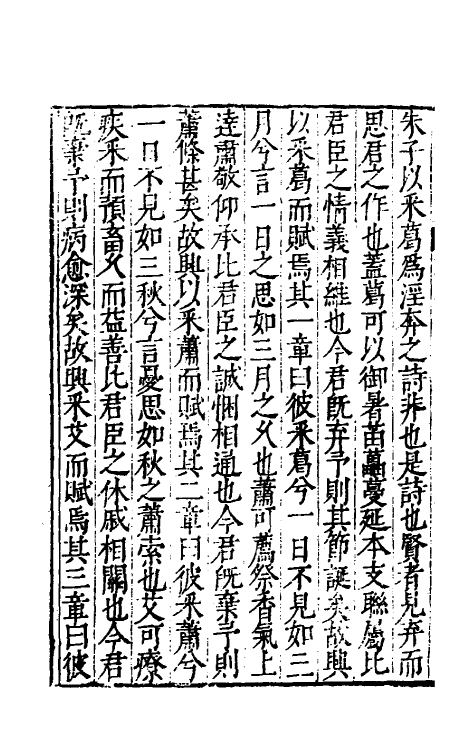 朱子以采葛爲淫奔之詩非也是詩也賢者見弃而
思君之作也蓋葛可以御暑苗蘽蔓延本支聯屬比
君臣之情義相維也今君既弃予則其節誕矣故興
以采葛而賦焉其一章曰彼采葛兮一日不見如三
月兮言一日之思如三月之久也蕭可薦祭香氣上
達肅敬仰承比君臣之誠悃相通也今君既棄予則
蕭條甚矣故興以采蕭而賦焉其二章曰彼采蕭兮
一日不見如三秋兮言憂思如秋之蕭索也艾可療
疾采而預畜久而益善比君臣之休戚相關也今君
既棄予則病愈深矣故興采艾而賦焉其三章曰彼